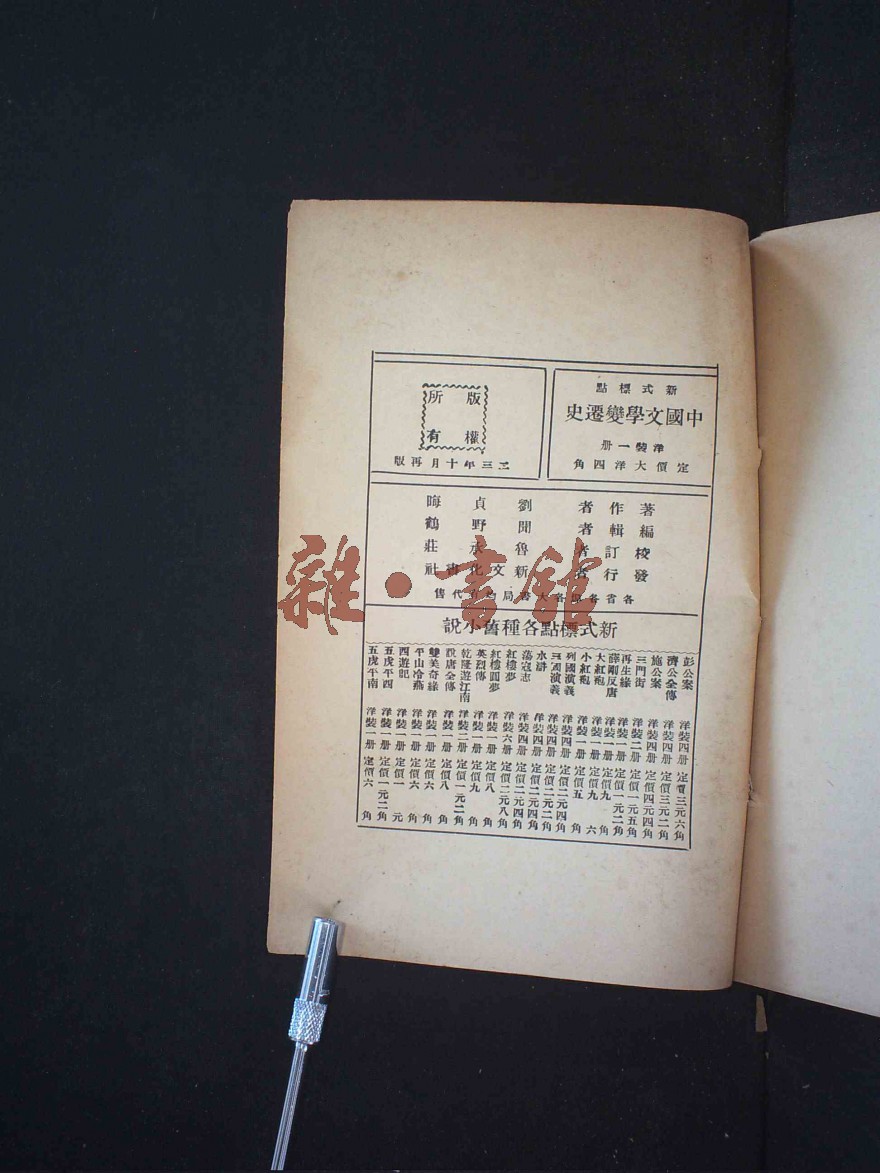 新式標點
中國文學變遷史
洋裝一册
定價大洋四角
版權所有
二三年十月再版
著作者 劉貞晦
編輯者 聞野鶴
校訂者 魯承莊
發行者 新文化書社
各省各埠各大書局均有代售
新式標點各種舊小說
彭公案 洋裝四册 定價三元六角
濟公全傳 洋裝四册 定價三元二角
施公案 洋裝四册 定價四元四角
三門街 洋裝二册 定價一元五角
再生緣 洋裝一册 定價一元二角
薛剛反唐 洋裝一册 定價九角
大紅袍 洋裝一册 定價九
小紅袍 洋裝一册 定價五角
列國演義 洋裝四册 定價二元四角
三國演義 洋裝四册 定價二元二角
水滸 洋裝四册 定價二元四角
蕩寇志 洋裝四册 定價二元四角
紅樓夢 洋裝六册 定價二元八角
紅樓圓夢 洋裝一册 定價八角
英烈傳 洋裝一册 定價九角
乾隆遊江南 洋裝二册 定價一元二角
說唐全傳 洋裝一册 定價八角
雙美奇緣 洋裝一册 定價六角
平山冷燕 洋裝一册 定價六角
西遊記 洋裝一册 定價一元
五虎平西 洋裝一册 定價一元二角
五虎平南 洋裝一册 定價六角
雜·書館